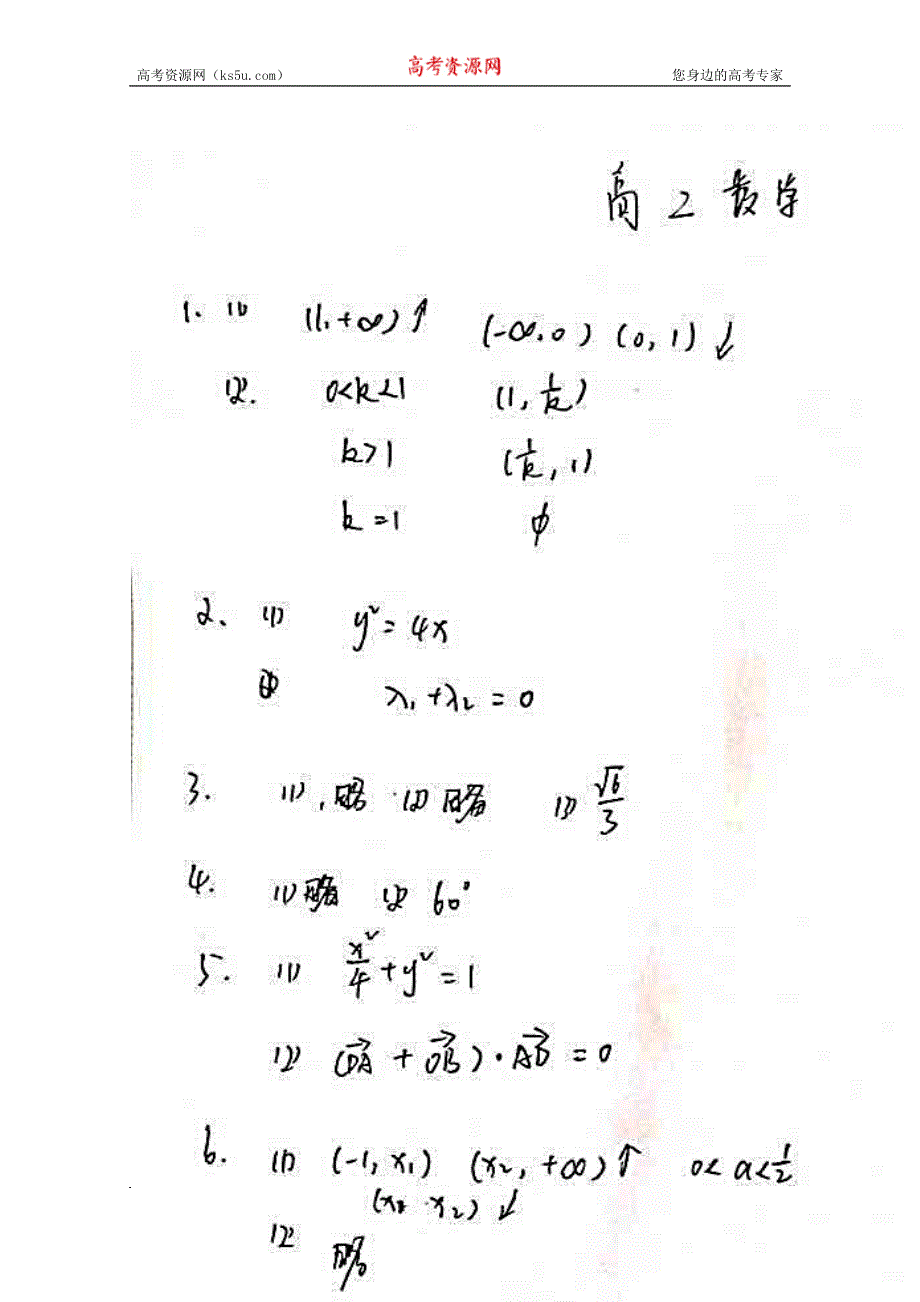 高考资源网（ks5u.com） 高考资源网 您身边的高考专家
高2数学
1. (1) (1,+∞)↑ (-∞,0) (0,1)↓
(2). 0<k<1 (1, 1/k)
k>1 (1/k, 1)
k=1 φ
2. (1) y²=4x
(2) λ₁+λ₂=0
3. (1). 略 (2) 略 (3) √6/3
4. (1) 略 (2) 60°
5. (1) x²/4+y²=1
(2) (OA + OB)·AD=0
6. (1) (-1, x₁) (x₂, +∞)↑ 0<a<1/2
(x₁, x₂)↓
(2) 略